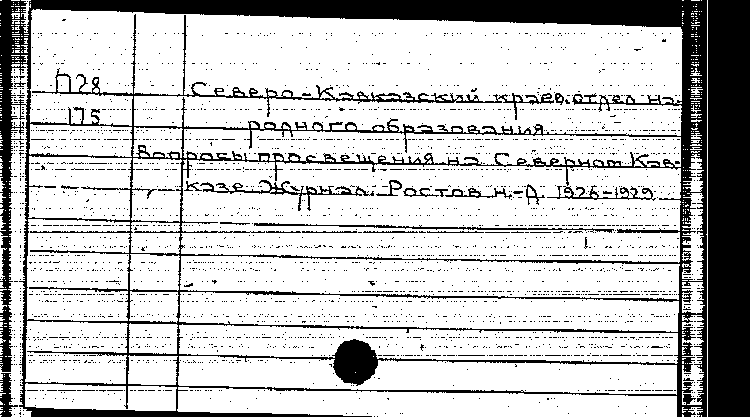 П28 Северо-Кавказский краев. отдел на-
175 родного образования
Вопросы просвещения на Северном Кав-
казе. Журнал. Ростов н.-Д. 1926-1929